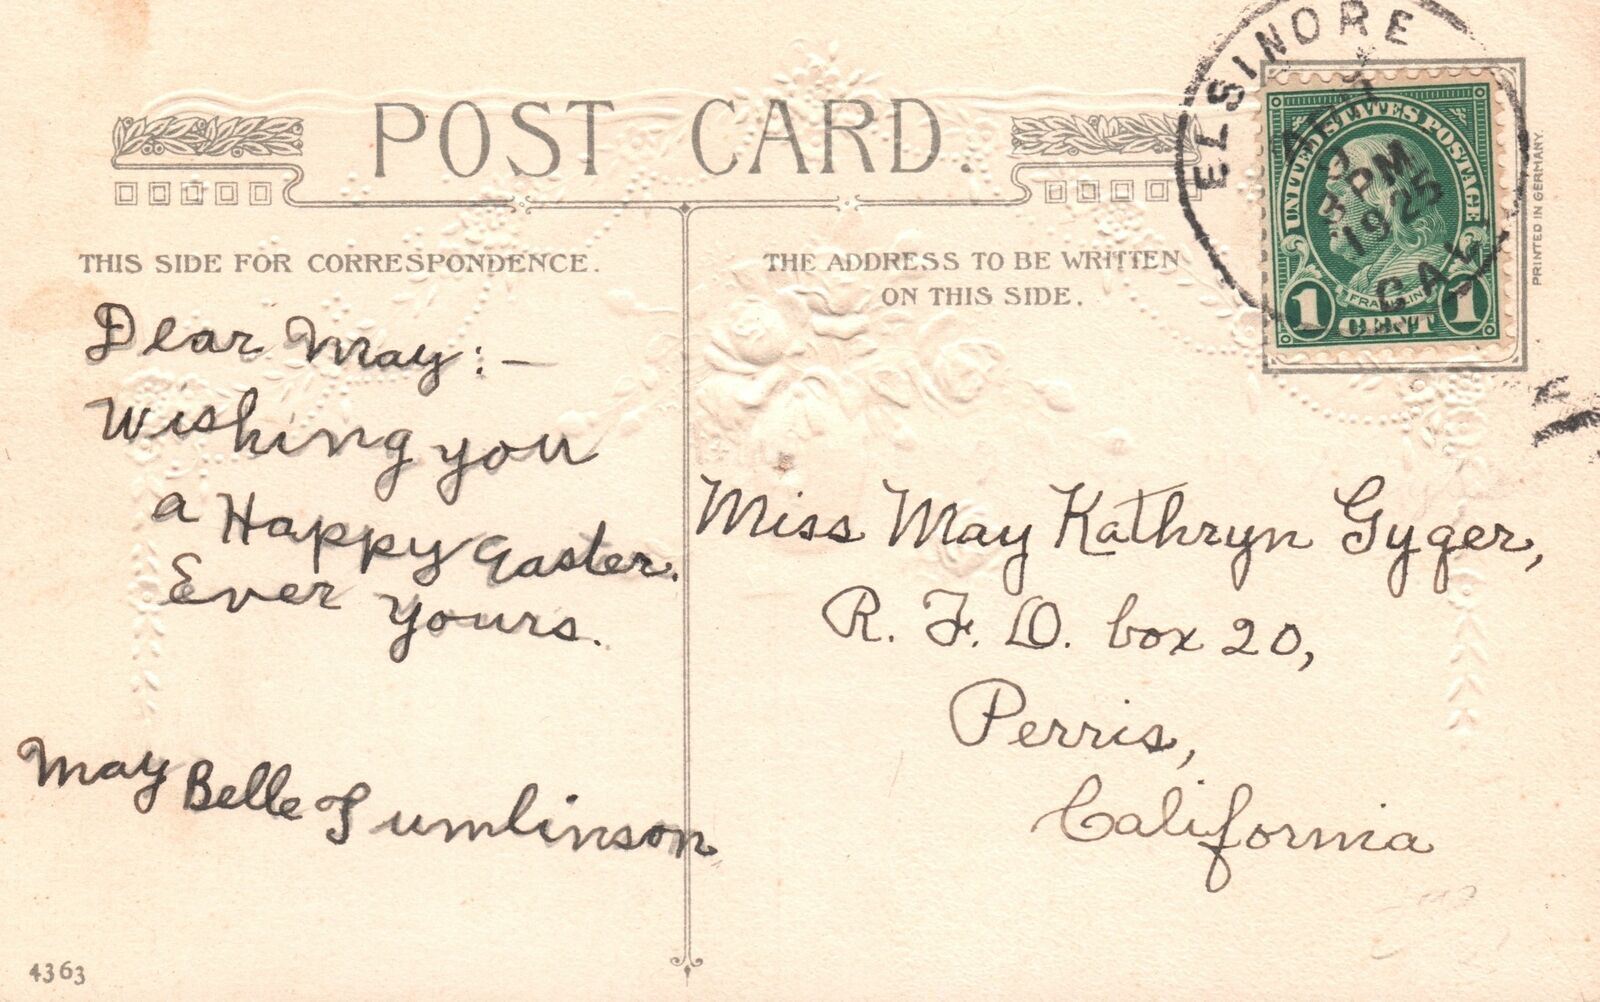 POST CARD.
ELSINORE
3 PM
1925
CAL.
UNITED STATES POSTAGE
FRANKLIN
1 CENT 1
PRINTED IN GERMANY.
THIS SIDE FOR CORRESPONDENCE.
Dear May:—
Wishing you
a Happy Easter.
Ever Yours.
May Belle Tumlinson
THE ADDRESS TO BE WRITTEN
ON THIS SIDE.
Miss May Kathryn Gyger,
R. F. D. box 20,
Perris,
California
4363